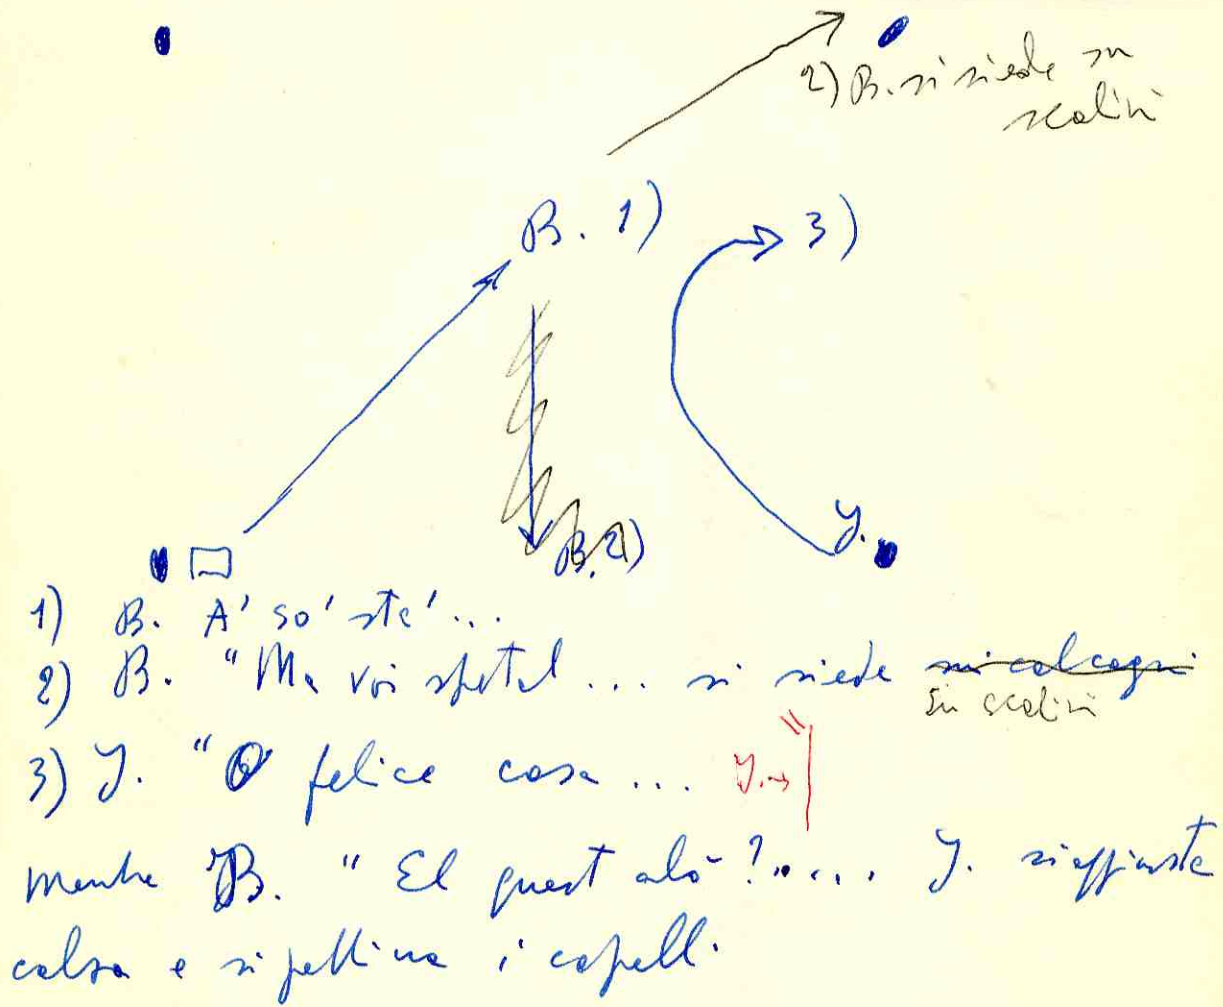 2) B. si siede su
scalini
B. 1)
3)
Y.
B. 2)
1) B. A' so' sta'...
2) B. "Ma voi spetal... si siede sui calcagni
su scalini
3) Y. "O felice casa... Y.→"
mentre B. "El quest alò?.... Y. si aggiusta
calza e si pettina i capelli.